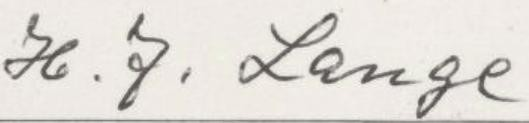 H. J. Lange